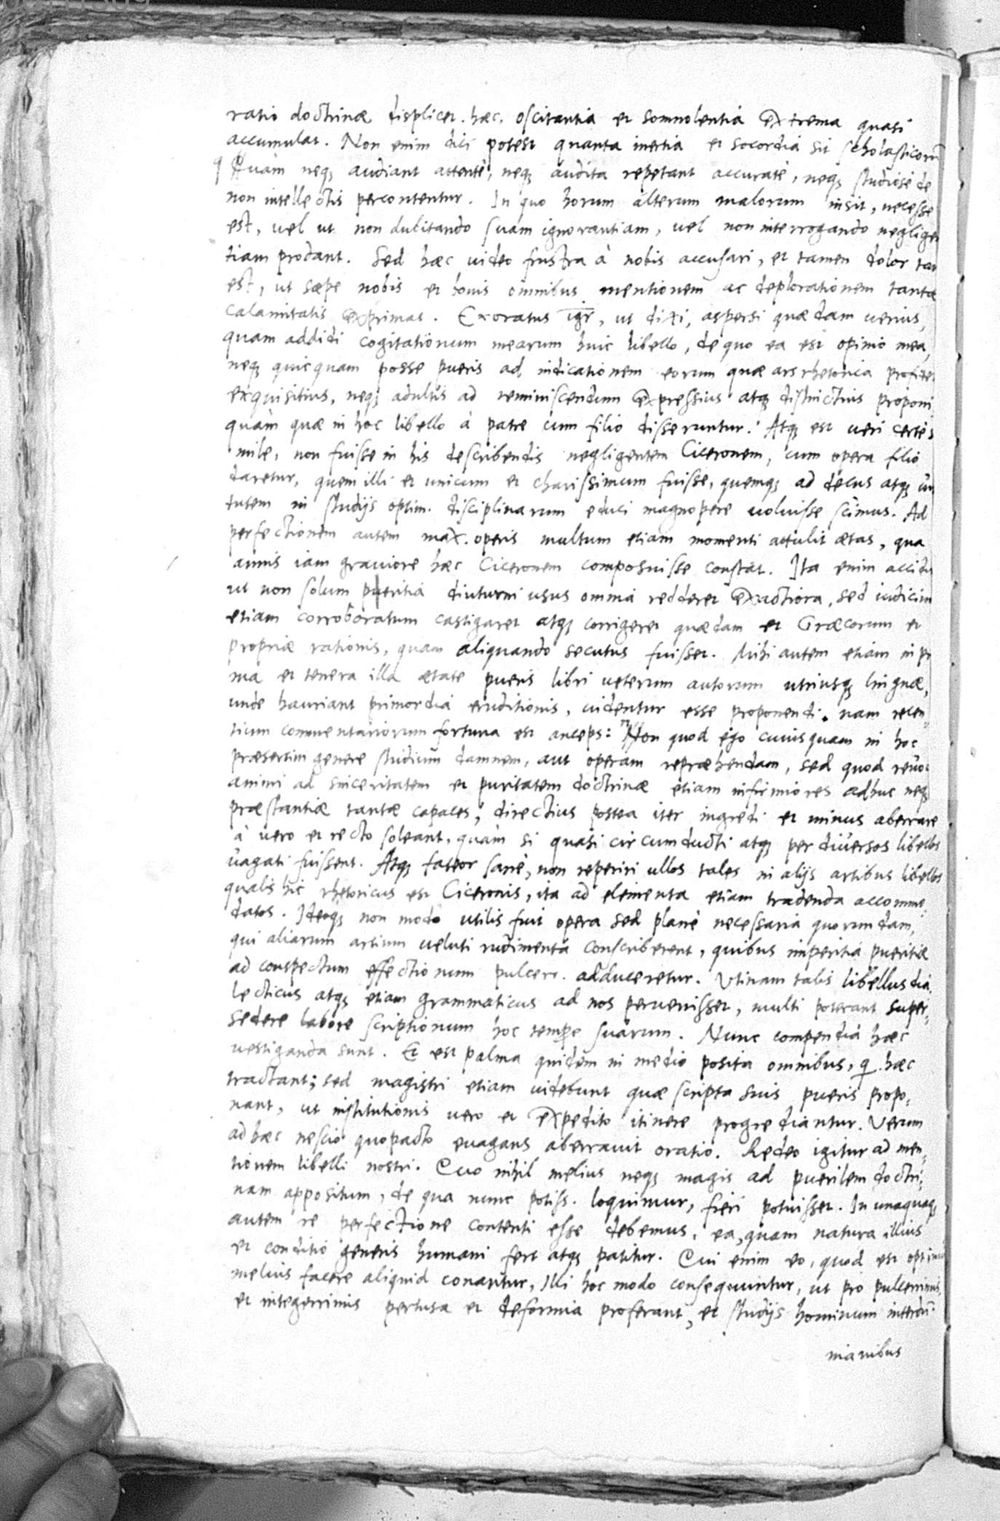 ratio doctrinæ displicet. hæc. oscitantia et somnolentia extrema quasi
accumulat. Non enim dici potest quanta inertia et socordia sit scholasticorum
Quàm neq; audiant attentè, neq; audita repetant accuratè, neq; studiosè de
non intellectis percontentur. In quo horum alterum malorum insit, necesse
est, vel ut non dubitando suam ignorantiam, vel non interrogando negligen
tiam prodant. Sed hæc video frustra à nobis accusari, et tamen dolor tan
est, ut sæpe nobis et bonis omnibus mentionem ac deplorationem tantæ
calamitatis exprimat. Exoratus igr, ut dixi, aspersi quædam verius,
quam addidi cogitationum mearum huic libello, de quo ea est opinio mea,
neq; quicquam posse pueris ad indicationem eorum quæ ars rhetorica profite
exquisitius, neq; adultis ad reminiscendum expressius atq; distinctius proponi
quàm quæ in hoc libello à patre cum filio disseruntur. Atq; est veri certè s
mile, non fuisse in his describendis negligentem Ciceronem, cum opera filio
daretur, quem illi et unicum et charissimum fuisse, quemq; ad decus atq; vir
tutem in studijs optim. disciplinarum educi magnopere voluisse scimus. Ad
perfectionem autem max. operis multum etiam momenti attulit ætas, qua
annis iam graviore hæc Ciceronem composuisse constat. Ita enim accidit
ut non solum peritia diuturni usus omnia redderet exactiora, sed iudicium
etiam corroboratum castigaret atq; corrigeret quædam et Græcorum et
propriæ rationis, quam aliquando secutus fuisset. Mihi autem etiam in pri
ma et tenera illa ætate pueris libri veterum autorum utriusq; linguæ,
unde hauriant primordia eruditionis, videntur esse proponendi. nam recen-
tium commentariorum fortuna est anceps: Non quod ego cuiusquam in hoc
præsertim genere studium damnem, aut operam repræhendam, sed quod
animi ad sinceritatem et puritatem doctrinæ etiam infirmiores adhuc neq;
præstantiæ tantæ capaces, directius postea iter ingredi et minus aberrare
à vero et recto soleant, quàm si quasi circumducti atq; per diversos libellos
vagati fuissent. Atq; fateor sanè, non reperiri ullos tales in alijs artibus libellos
qualis hic rhetoricus est Ciceronis, ita ad elementa etiam tradenda accommo-
datos. Itaq; non modò utilis fuit opera sed planè necessaria quorundam,
qui aliarum artium veluti rudimenta conscriberent, quibus imperitia pueritiæ
ad conspectum effectionum pulcerr. adduceretur. Utinam talis libellus dia,
lecticus atq; etiam grammaticus ad nos pervenisset, multi poterant super,
sedere labore scriptionum hoc tempore suarum. Nunc compendia hæc
vestiganda sunt. Et est palma quidem in medio posita omnibus, q hæc
tractant; sed magistri etiam videbunt quæ scripta suis pueris propo,
nant, ut institutionis vero et expedito itinere progrediantur. Verum
ad hæc nescio quo pacto evagans aberravit oratio. Redeo igitur ad men,
tionem libelli nostri. Quo nihil melius neq; magis ad puerilem doctri,
nam appositum, de qua nunc potiss. loquimur, fieri potuisset. In unaquaq;
autem re perfectione contenti esse debemus, ea, quam natura illius
et conditio generis humani fert atq; patitur. Qui enim eo, quod est optimum
melius facere aliquid conantur, Illi hoc modo consequuntur, ut pro pulcerrimis
et integerrimis pertusa et deformia proferant, et studijs hominum interdum
manibus